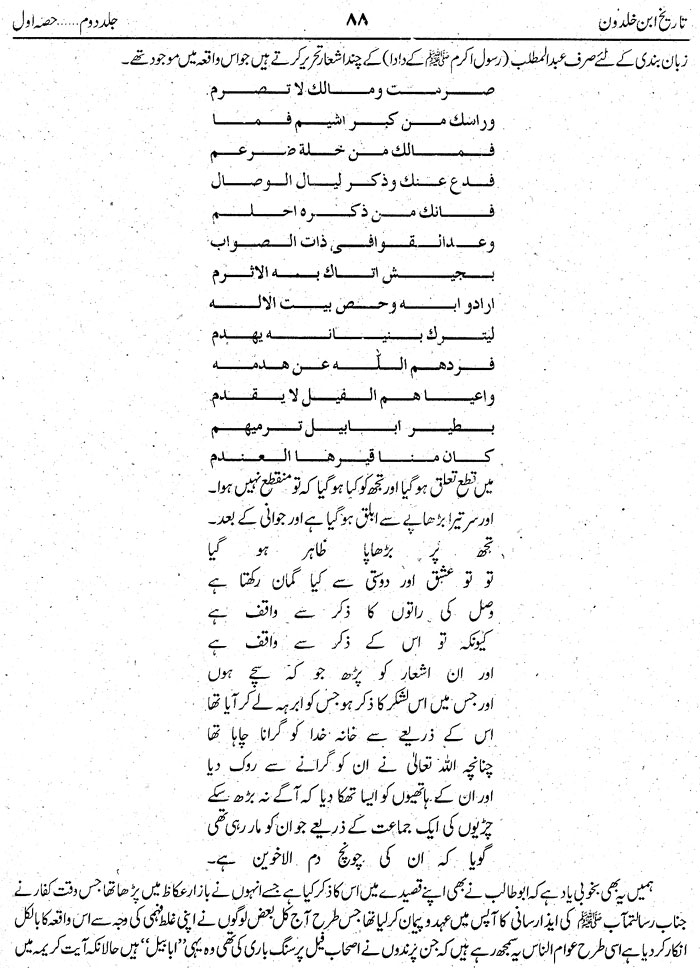 تاریخ ابن خلدون ۸۸ جلد دوم ...... حصہ اول
زبان بندی کے لئے صرف عبدالمطلب (رسول اکرم ﷺ کے دادا) کے چند اشعار تحریر کرتے ہیں جو اس واقعہ میں موجود تھے۔
صرمت ومالك لا تصرم
وراسك من كبر اشيم فما
فمالك من خلة ضرعم
فدع عنك وذكر ليال الوصال
فانك من ذكره احلم
وعدالقوافى ذات الصواب
بجيش اتاك بمه الاثرم
ارادو ابه وحص بيت الاله
ليترك بنيانه يهدم
فردهم الله عن هدمه
واعياهم الفيل لا يقدم
بطير ابابيل ترميهم
كان مناقيرها العندم
میں قطع تعلق ہوگیا اور تجھ کو کیا ہوگیا کہ تو منقطع نہیں ہوا۔
اور سر تیرا بڑھاپے سے ابلق ہوگیا ہے اور جوانی کے بعد۔
تجھ پر بڑھاپا ظاہر ہو گیا
تو تو عشق اور دوستی سے کیا گمان رکھتا ہے
وصل کی راتوں کا ذکر سے واقف ہے
کیونکہ تو اس کے ذکر سے واقف ہے
اور ان اشعار کو پڑھ جو کہ سچے ہوں
اور جس میں اس لشکر کا ذکر ہو جس کو ابرہہ لے کر آیا تھا
اس کے ذریعے سے خانہ خدا کو گرانا چاہا تھا
چنانچہ اللہ تعالیٰ نے ان کو گرانے سے روک دیا
اور ان کے ہاتھیوں کو ایسا تھکا دیا کہ آگے نہ بڑھ سکے
چڑیوں کی ایک جماعت کے ذریعے جو ان کو مار رہی تھی
گویا کہ ان کی چونچ دم الاخوین ہے۔
ہمیں یہ بھی بخوبی یاد ہے کہ ابو طالب نے بھی اپنے قصیدے میں اس کا ذکر کیا ہے جسے انہوں نے بازار عکاظ میں پڑھا تھا جس وقت کفار نے
جناب رسالتمآب ﷺ کی ایذا رسانی کا آپس میں عہد و پیمان کر لیا تھا جس طرح آج کل بعض لوگوں نے اپنی غلط فہمی کی وجہ سے اس واقعہ کا بالکل
انکار کر دیا ہے اسی طرح عوام الناس یہ سمجھ رہے ہیں کہ جن پرندوں نے اصحاب فیل پر سنگ باری کی تھی وہ یہی ”ابابیل“ ہیں حالانکہ آیت کریمہ میں